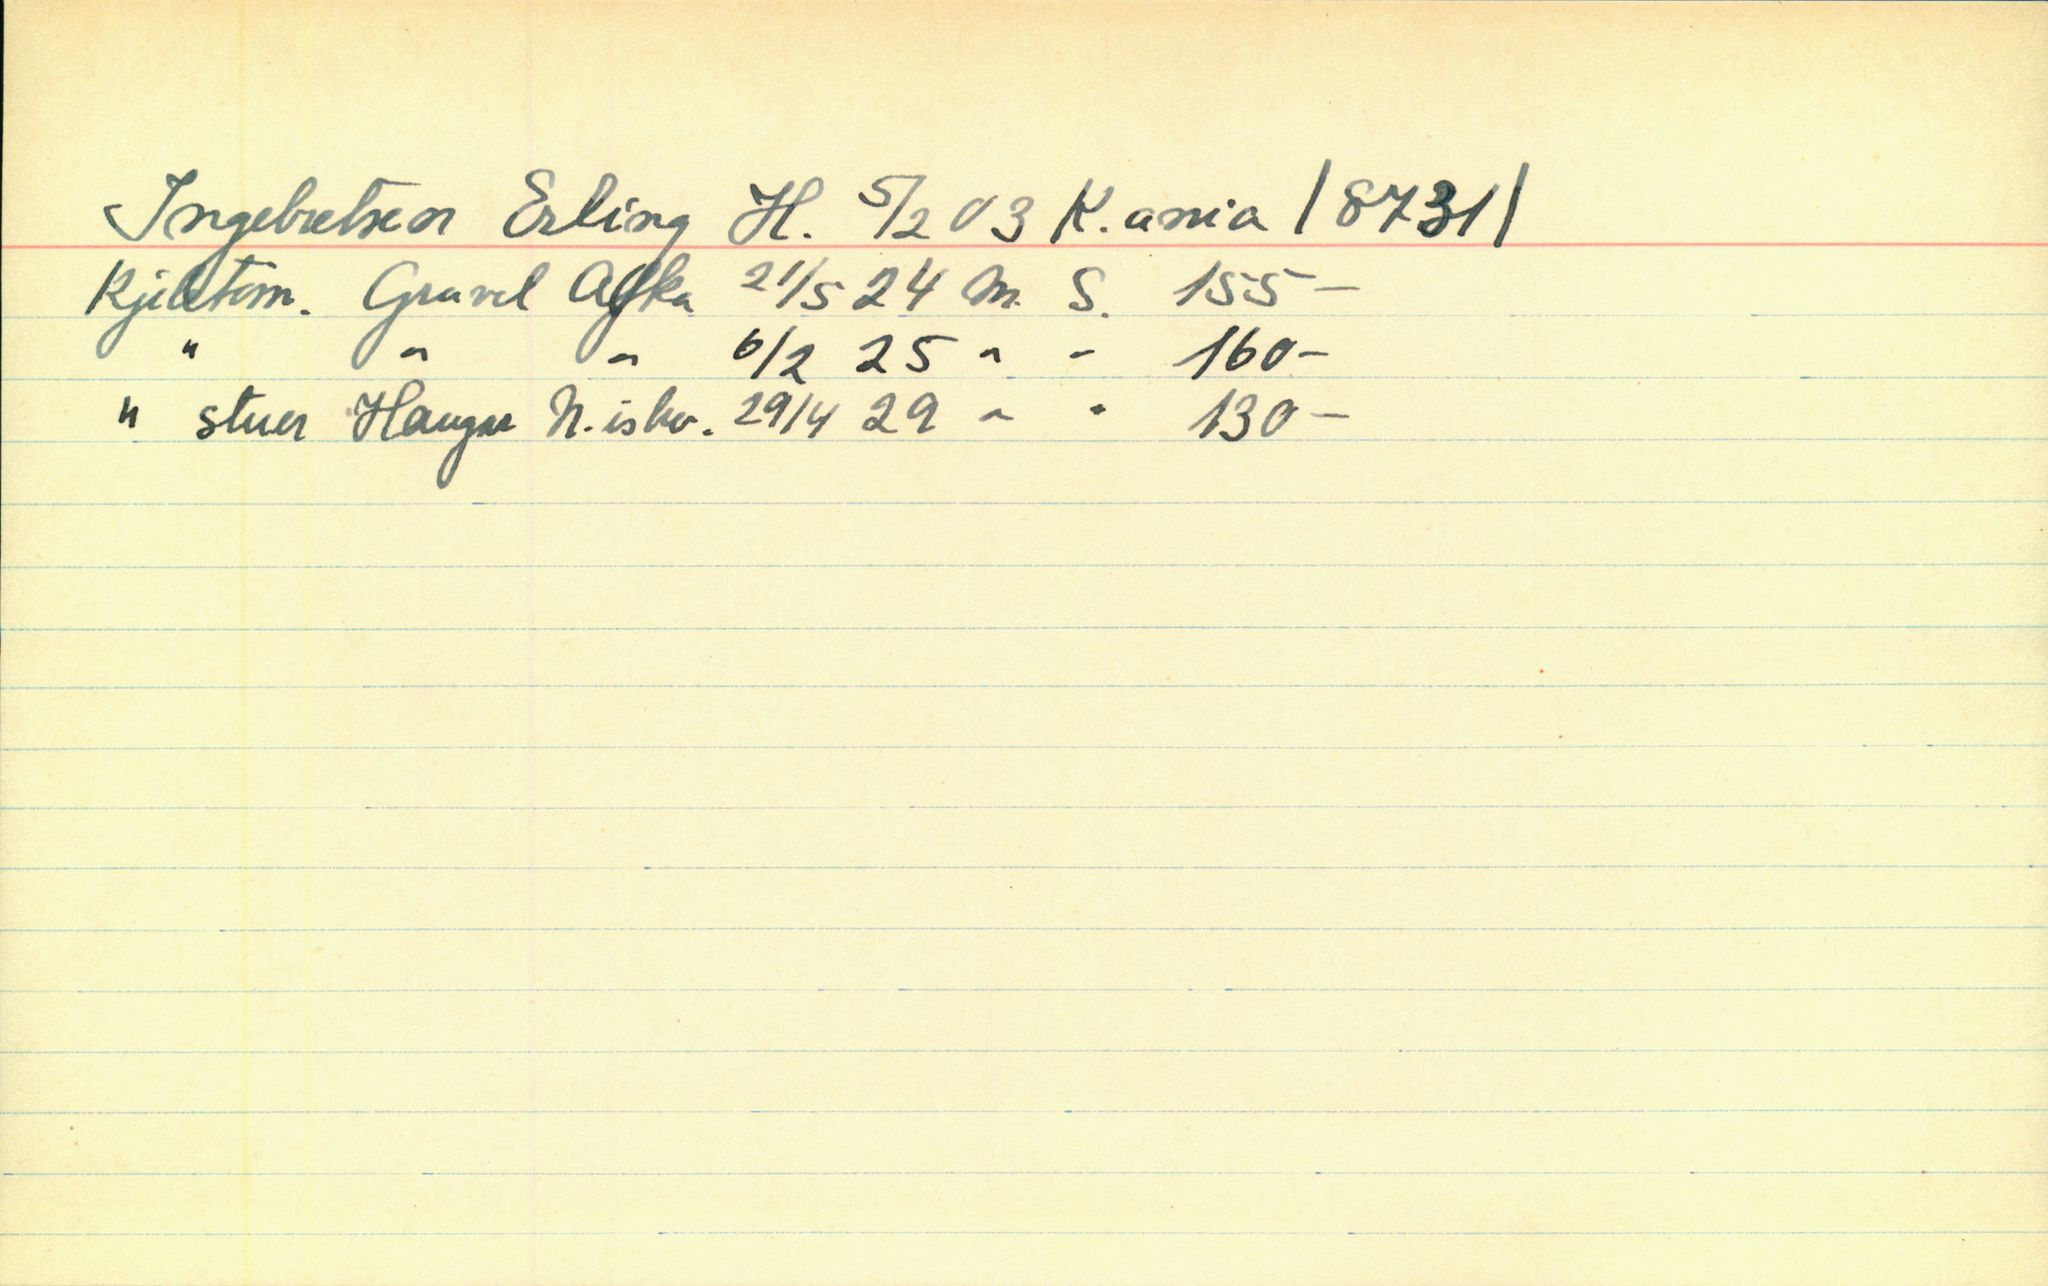 Ingebretsen Erling H. 5/2 03 K.ania /8731/
Gravel Afka 21/5 24 M. S. 155-
" " " 6/2 25 " " 160-
" stuer Hauger N.isho. 29/4 29 " " 130-